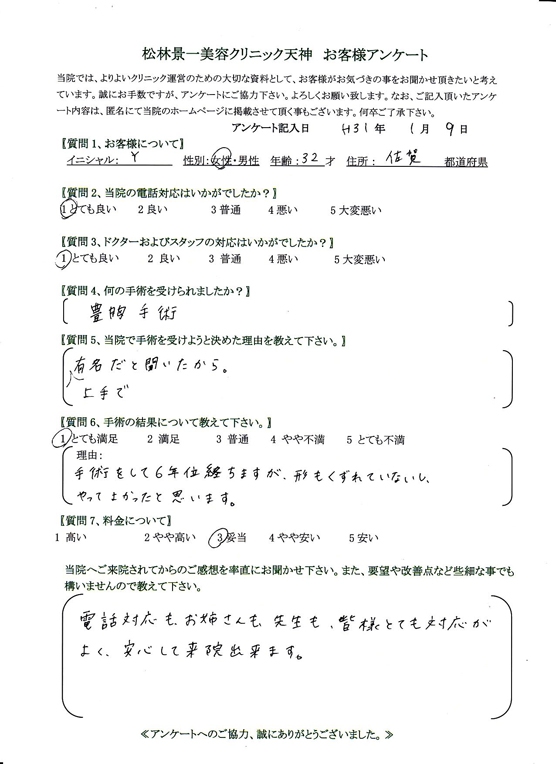 松林景一美容クリニック天神　お客様アンケート
当院では、よりよいクリニック運営のための大切な資料として、お客様がお気づきの事をお聞かせ頂きたいと考え
ています。誠にお手数ですが、アンケートにご協力下さい。よろしくお願い致します。なお、ご記入頂いたアンケ
ート内容は、匿名にて当院のホームページに掲載させて頂く事もございます。何卒ご了承下さい。
アンケート記入日　H31年　1月　9日
〖質問 1、お客様について〗
イニシャル： Y　性別：女性・男性　年齢：32 才　住所： 佐賀　都道府県
〖質問 2、当院の電話対応はいかがでしたか？〗
1 とても良い　2 良い　3 普通　4 悪い　5 大変悪い
〖質問 3、ドクターおよびスタッフの対応はいかがでしたか？〗
1 とても良い　2 良い　3 普通　4 悪い　5 大変悪い
〖質問 4、何の手術を受けられましたか？〗
豊胸手術
〖質問 5、当院で手術を受けようと決めた理由を教えて下さい。〗
有名だと聞いたから。
上手で
〖質問 6、手術の結果について教えて下さい。〗
1 とても満足　2 満足　3 普通　4 やや不満　5 とても不満
理由：
手術をして6年位経ちますが、形もくずれていないし、
やってよかったと思います。
〖質問 7、料金について〗
1 高い　2 やや高い　3 妥当　4 やや安い　5 安い
当院へご来院されてからのご感想を率直にお聞かせ下さい。また、要望や改善点など些細な事でも
構いませんので教えて下さい。
電話対応も、お姉さんも、先生も、皆様とても対応が
よく、安心して来院出来ます。
≪アンケートへのご協力、誠にありがとうございました。≫